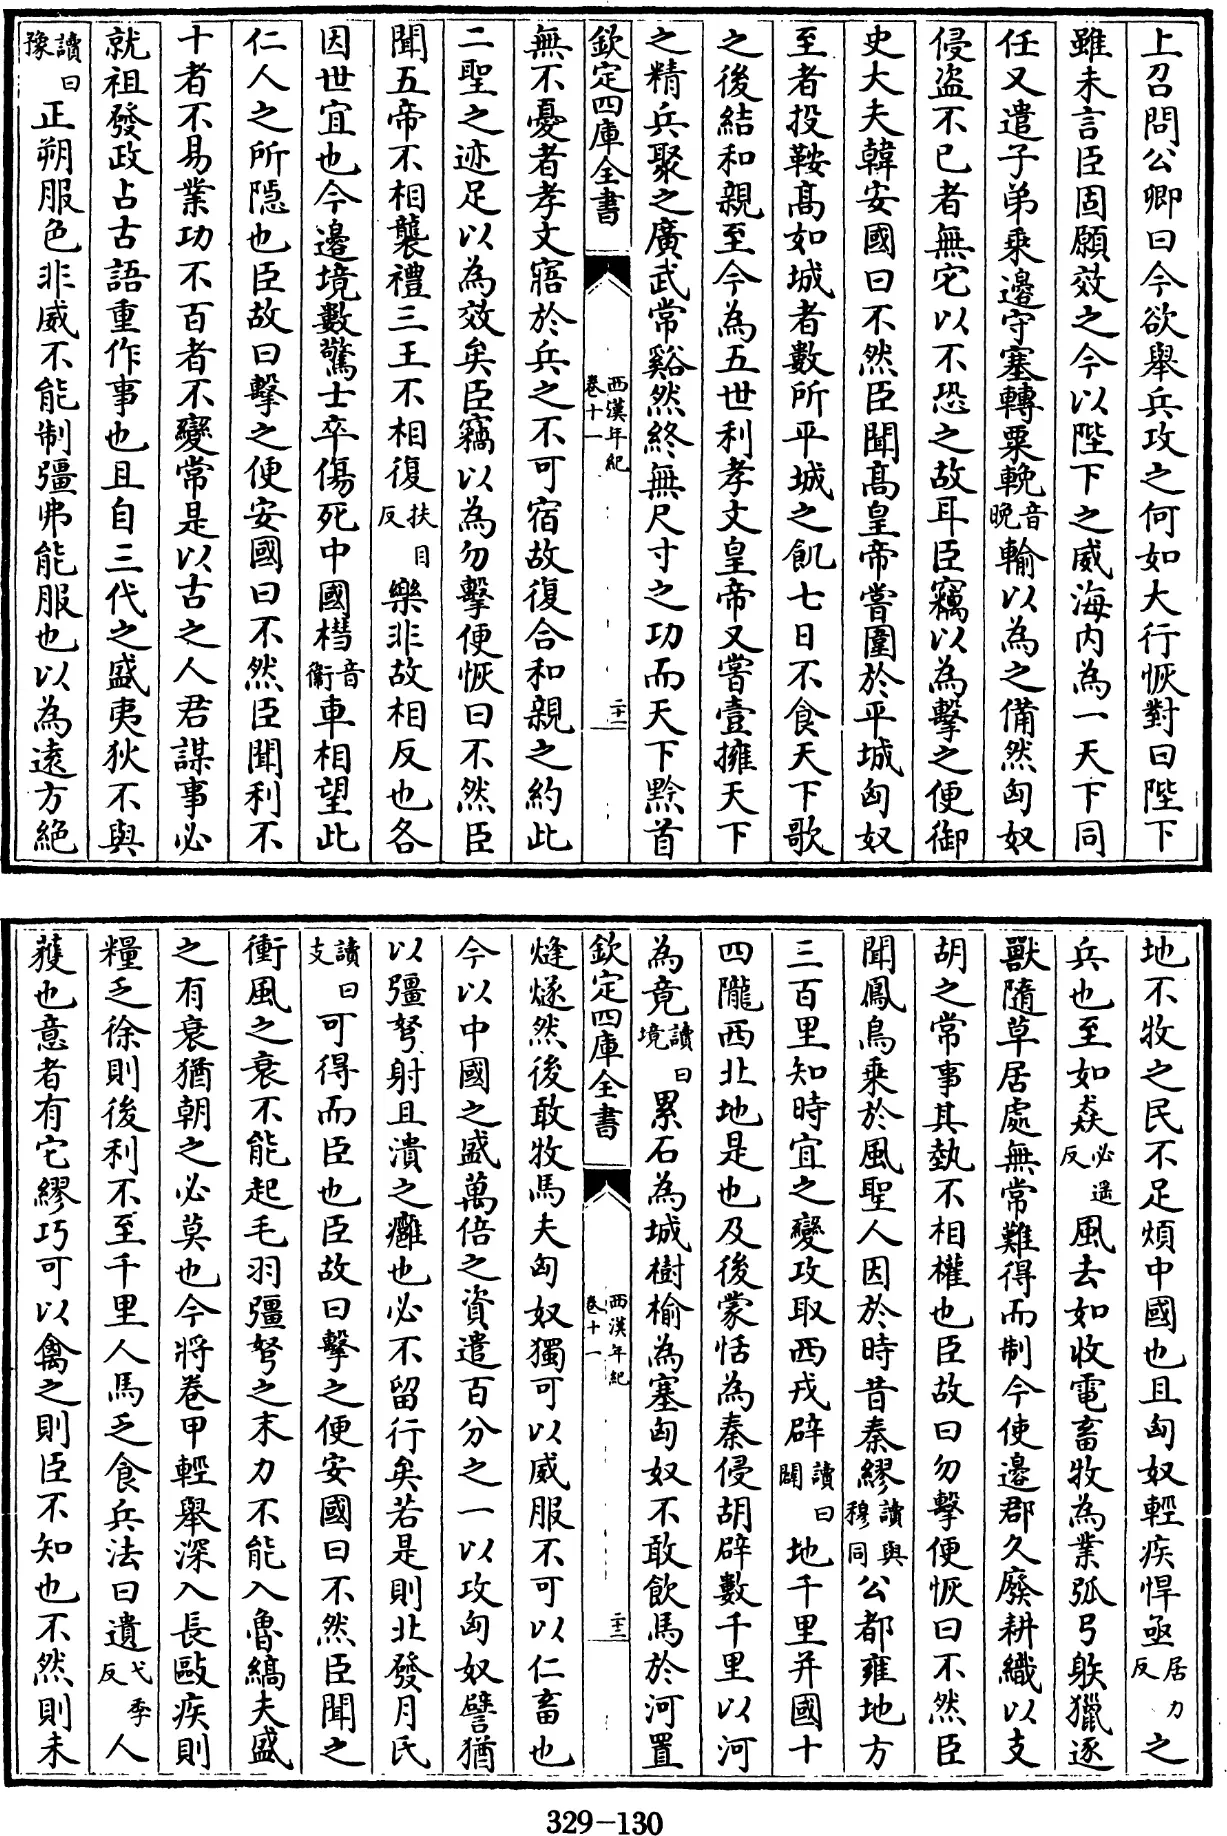 上召問公卿曰今欲舉兵攻之何如大行恢對曰陛下
雖未言臣固願效之今以陛下之威海内為一天下同
任又遣子弟乘邊守塞轉粟輓音晚輸以為之備然匈奴
侵盗不已者無它以不恐之故耳臣竊以為擊之便御
史大夫韓安國曰不然臣聞髙皇帝嘗圍於平城匈奴
至者投鞍髙如城者數所平城之飢七日不食天下歌
之後結和親至今為五世利孝文皇帝又嘗壹擁天下
之精兵聚之廣武常谿然終無尺寸之功而天下黔首
欽定四庫全書
西漢年紀
卷十一
二十一
無不憂者孝文寤於兵之不可宿故復合和親之約此
二聖之迹足以為效矣臣竊以為勿擊便恢曰不然臣
聞五帝不相襲禮三王不相復扶目反樂非故相反也各
因世宜也今邊境數驚士卒傷死中國槥音衞車相望此
仁人之所隠也臣故曰擊之便安國曰不然臣聞利不
十者不易業功不百者不變常是以古之人君謀事必
就祖發政占古語重作事也且自三代之盛夷狄不與
讀曰豫正朔服色非威不能制彊弗能服也以為逺方絶
地不牧之民不足煩中國也且匈奴輕疾悍亟居力反之
兵也至如猋必遥反風去如收電畜牧為業弧弓躲獵逐
獸隨草居處無常難得而制今使邊郡久廢耕織以支
胡之常事其埶不相權也臣故曰勿擊便恢曰不然臣
聞鳳鳥乘於風聖人因於時昔秦繆讀與穆同公都雍地方
三百里知時宜之變攻取西戎辟讀曰闢地千里并國十
四隴西北地是也及後蒙恬為秦侵胡辟數千里以河
為竟讀曰境累石為城樹榆為塞匈奴不敢飲馬於河置
欽定四庫全書
西漢年紀
卷十一
二十二
烽燧然後敢牧馬夫匈奴獨可以威服不可以仁畜也
今以中國之盛萬倍之資遣百分之一以攻匈奴譬猶
以彊弩射且潰之癰也必不留行矣若是則北發月氏
讀曰支可得而臣也臣故曰擊之便安國曰不然臣聞之
衝風之衰不能起毛羽彊弩之末力不能入魯縞夫盛
之有衰猶朝之必莫也今將卷甲輕舉深入長敺疾則
糧乏徐則後利不至千里人馬乏食兵法曰遺弋季反人
獲也意者有它繆巧可以禽之則臣不知也不然則未
329-130